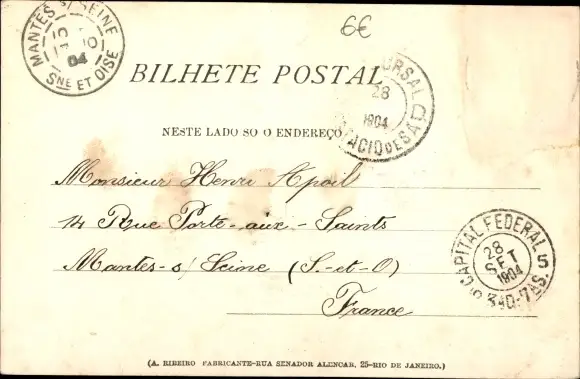 6€
MANTES S/ SEINE
04
SNE ET OISE
BILHETE POSTAL
28
1904
NESTE LADO SO O ENDEREÇO
Monsieur Henri Apoil
14 Rue Porte-aux-Saints
Mantes-s/Seine (S.-et-O)
France
CAPITAL FEDERAL
28
SET
1904
5
(A. RIBEIRO FABRICANTE-RUA SENADOR ALENCAR, 25-RIO DE JANEIRO.)